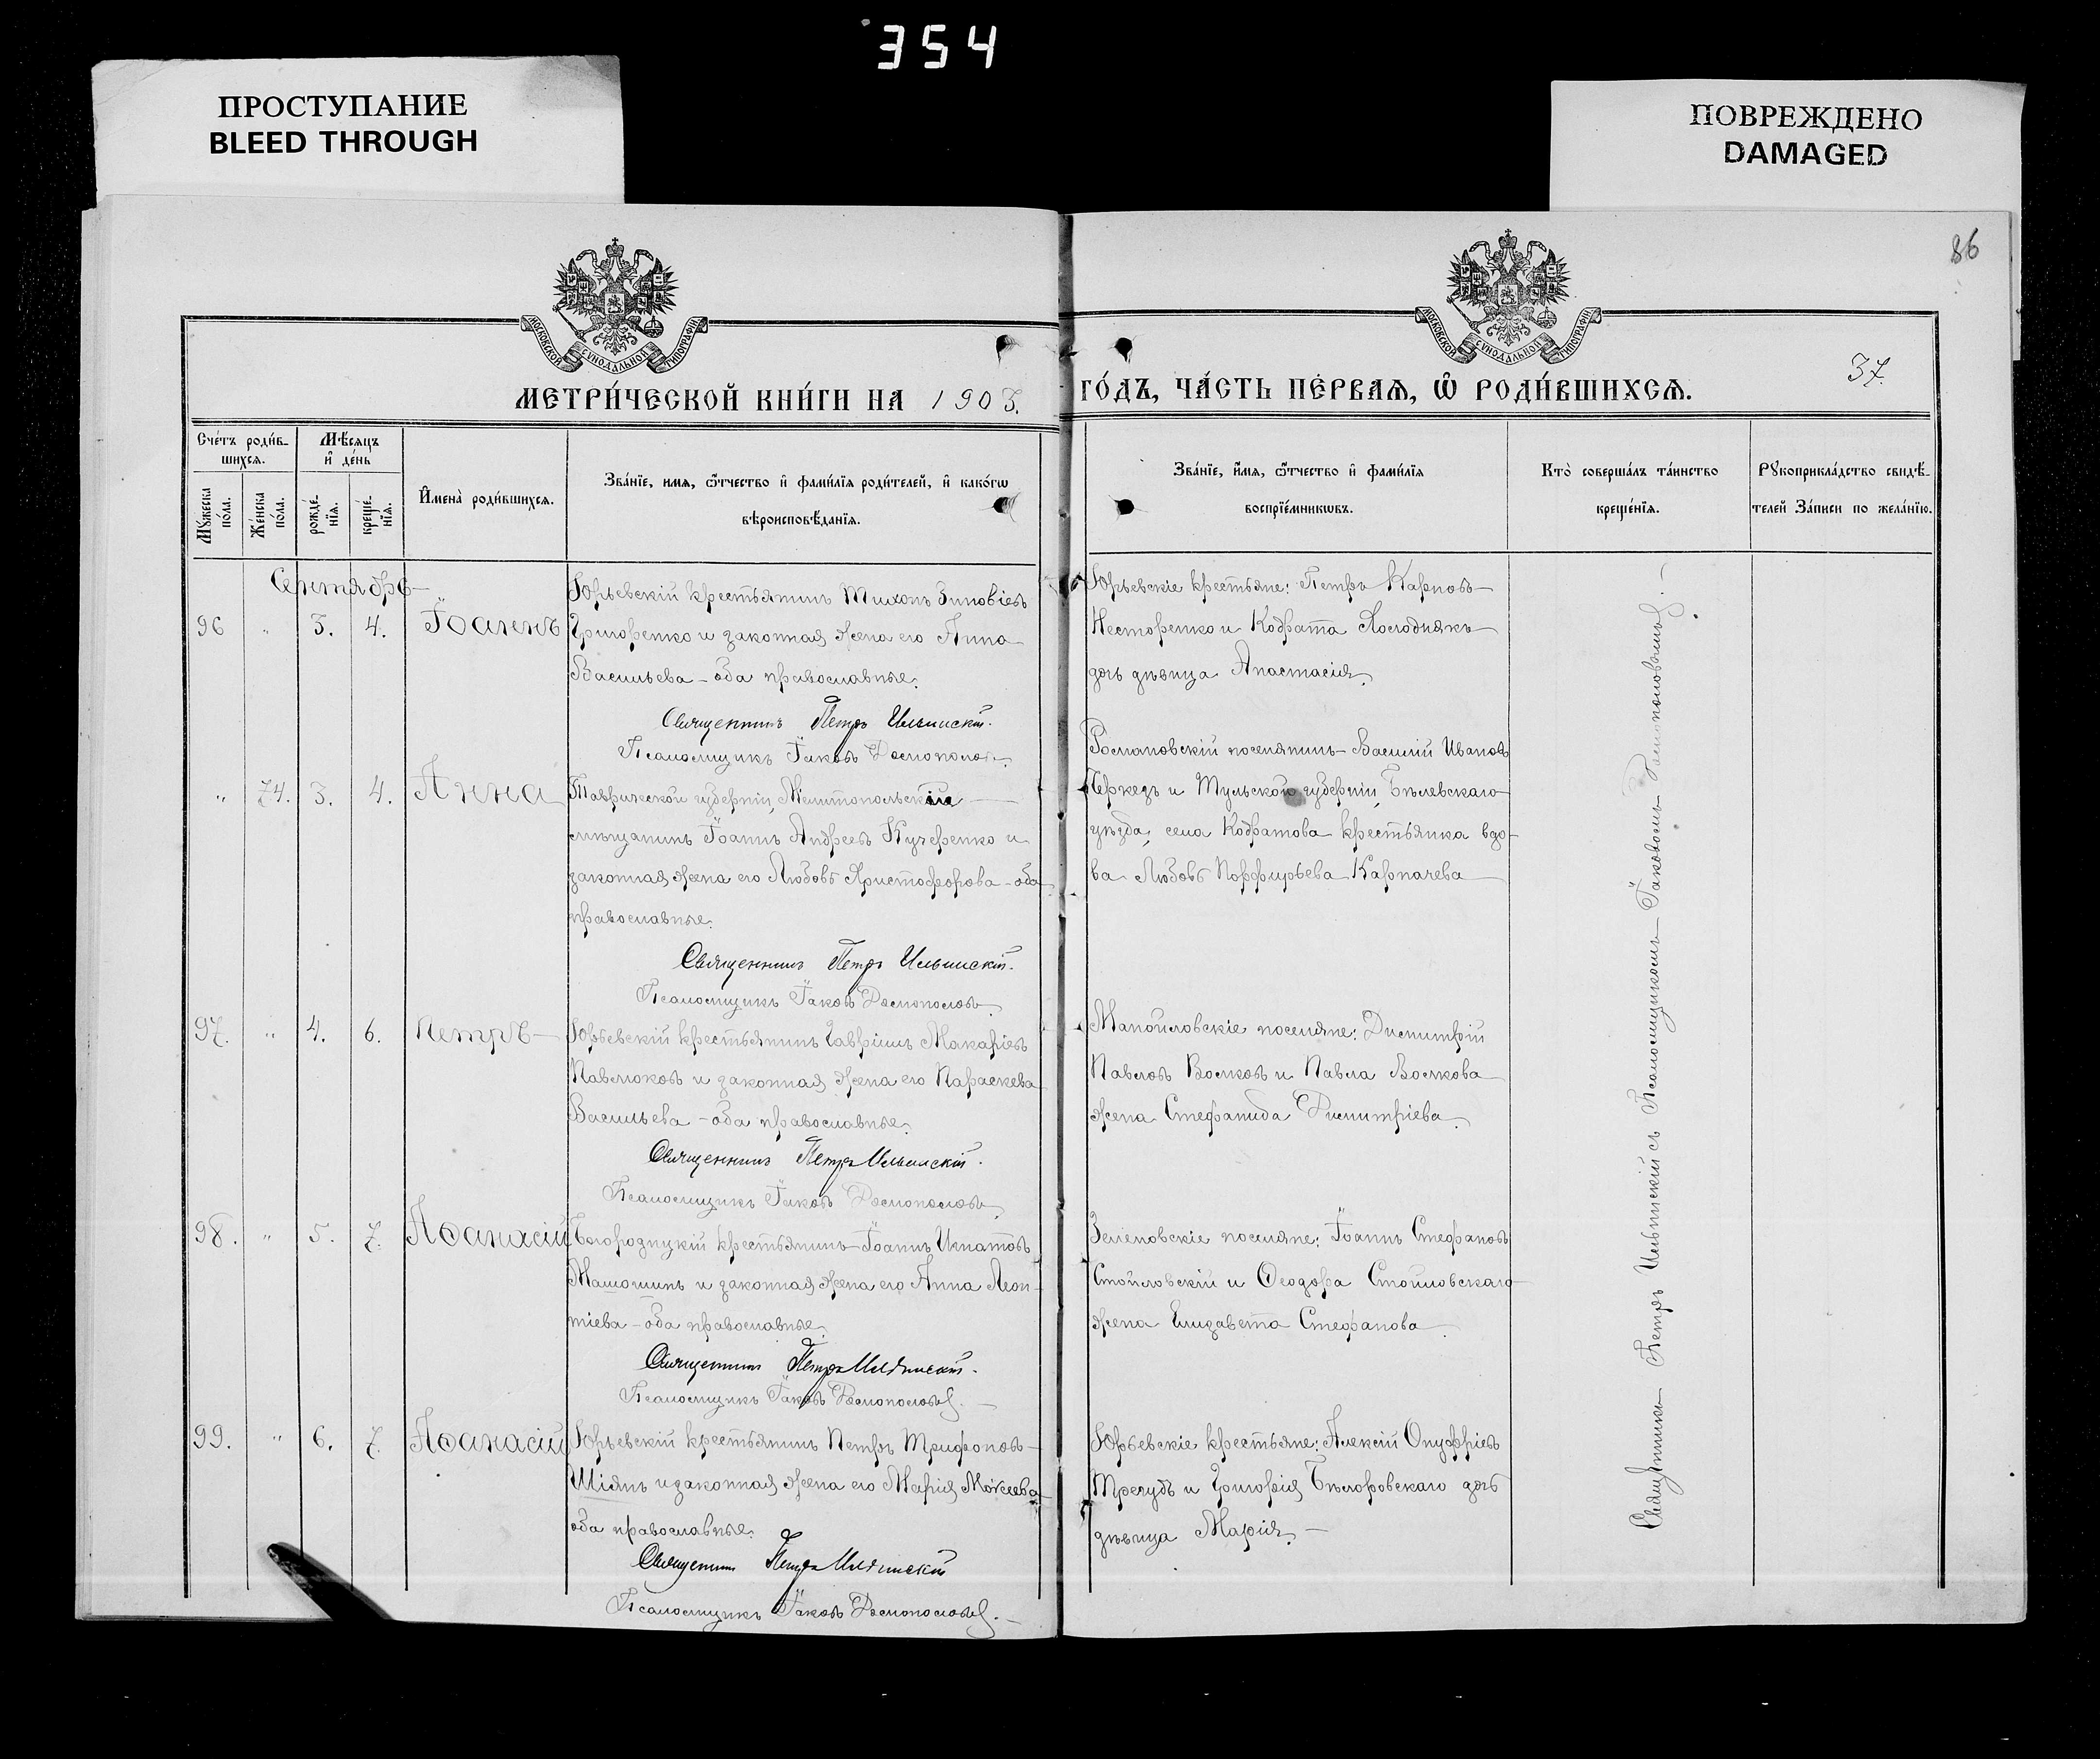 354
ПРОСТУПАНИЕ
BLEED THROUGH
ПОВРЕЖДЕНО
DAMAGED
86
МОСКОВСКОЙ СѴНОДАЛЬНОЙ ТИПОГРАФІИ
МОСКОВСКОЙ СѴНОДАЛЬНОЙ ТИПОГРАФІИ
37.
МЕТРИ́ЧЕСКОЙ КНИ́ГИ НА 1903. ГО́ДЪ, ЧА́СТЬ ПЕ́РВАЯ, Ѡ РОДИ́ВШИХСЯ.
Сче́тъ роди́вшихся.
Мꙋ́жеска по́ла.
Же́нска по́ла.
Мѣ́сяцъ и҆ де́нь
рожде́нїя.
креще́нїя.
И҆мена̀ роди́вшихся.
Зва́нїе, имя, ѻ҆́тчество и҆ фами́лїя роди́телей, и҆ како́гѡ
вѣроисповѣ́данїя.
Зва́нїе, и҆́мя, ѻ҆́тчество и҆ фами́лїя
воспрїе́мникѡвъ.
Кто̀ соверша́лъ та́инство
креще́нїя.
Рꙋкоприкла́дство свидѣ́-
телей За́писи по жела́нїю.
Сентябрь
96 " 3. 4. Іоаннъ
Юрьевскій крестьянинъ Тихонъ Зиновіевъ
Григоренко и законная жена его Анна
Васильева – оба православные.
Священникъ Петръ Ильинскій.
Псаломщикъ Іаковъ Распоповъ.
Юрьевскіе крестьяне: Петръ Карповъ
Несторенко и Кодрата Холоднякъ
дочь дѣвица Анастасія.
" 74. 3. 4. Анна
Таврической губерніи, Мелитопольскій
мѣщанинъ Іоаннъ Андреевъ Кучеренко и
законная жена его Любовь Христофорова – оба
православные.
Священникъ Петръ Ильинскій.
Псаломщикъ Іаковъ Распоповъ.
поселянинъ – Василій Ивановъ
и Тульской губерніи, Бѣлевскаго
уѣзда, села Кодратова крестьянка вдо-
ва Любовь Порфирьева Карпачева
97. " 4. 6. Петръ
Юрьевскій крестьянинъ Гавріилъ Макаріевъ
Павлюковъ и законная жена его Параскева
Васильева – оба православные.
Священникъ Петръ Ильинскій.
Псаломщикъ Іаковъ Распоповъ.
Манойловскіе поселяне: Димитрій
Павловъ Волковъ и Павла Волкова
жена Стефанида Димитріева.
98. " 5. 7. Аѳанасій
Богородицкій крестьянинъ Іоаннъ Игнатовъ
Матюшинъ и законная жена его Анна Леон-
тіева – оба православные.
Священникъ Петръ Ильинскій.
Псаломщикъ Іаковъ Распоповъ.
Зеленовскіе поселяне: Іоаннъ Стефановъ
Стойловскій и Ѳеодора Стойловскаго
жена Елизавета Стефанова.
99. " 6. 7. Аѳанасій
Юрьевскій крестьянинъ Петръ Трифоновъ –
Шіянъ и законная жена его Марія Моисеева
оба православные.
Священникъ Петръ Ильинскій
Псаломщикъ Іаковъ Распоповъ.
Юрьевскіе крестьяне: Алексій Онуфріевъ
Трегубъ и Григорія Бѣлоровскаго дочь
дѣвица Марія. –
Священникъ Петръ Ильинскій съ Псаломщикомъ Іаковомъ Распоповымъ. –